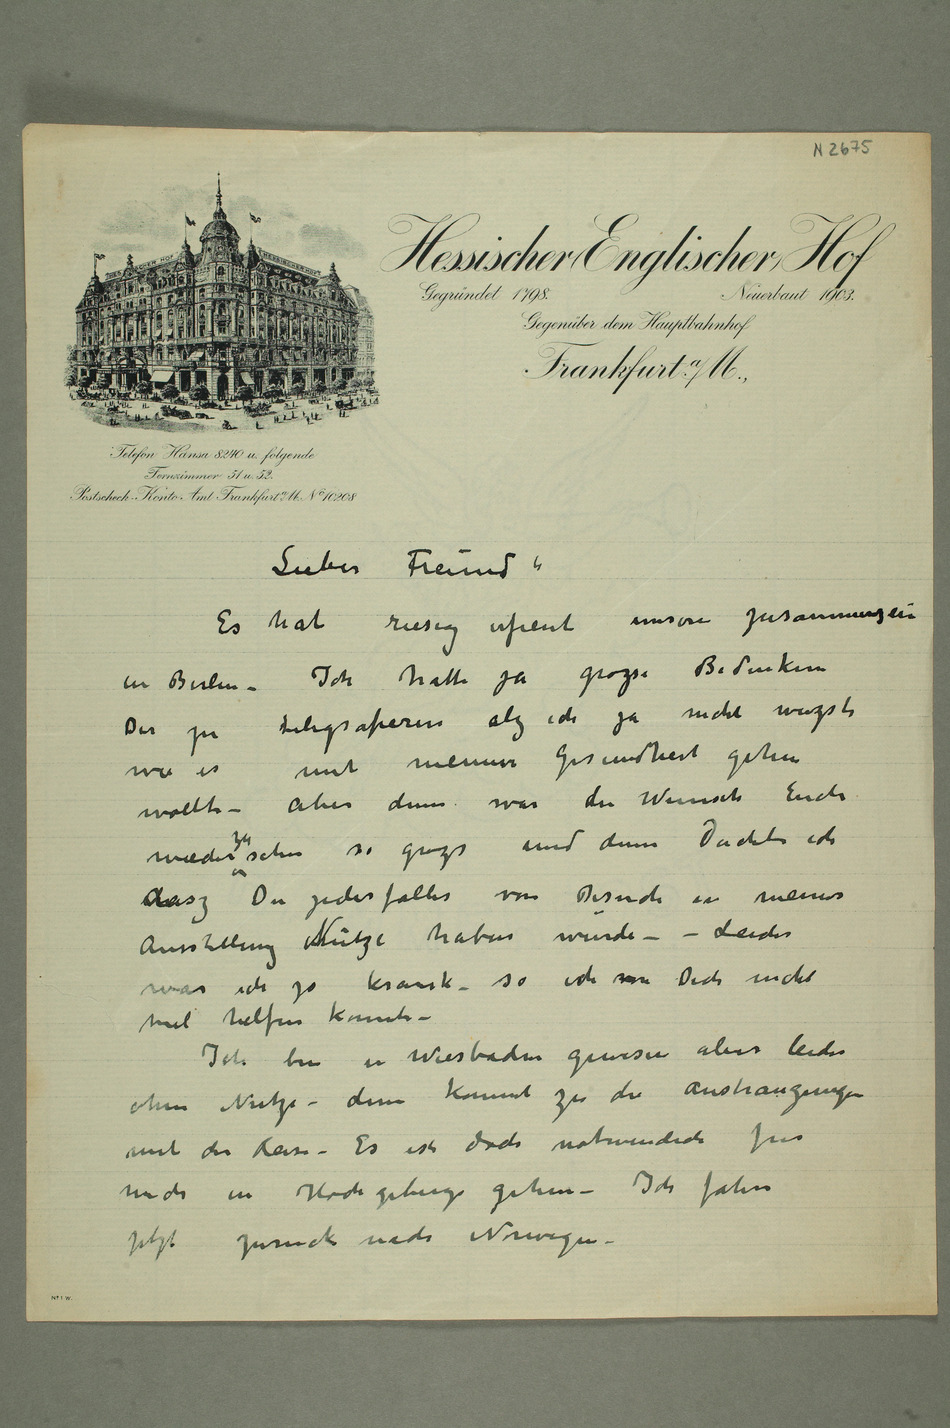 N 2675
Hessischer (Englischer) Hof
Gegründet 1798. Neuerbaut 1903.
Gegenüber dem Hauptbahnhof
Frankfurt a/M.,
HESSISCHER HOF
Telefon Hansa 8240 u. folgende
Fernzimmer 51 u. 52.
Postscheck-Konto Amt Frankfurt a/M. No 10208
Lieber Freund
Es hat riesig erfreut unsere zusammensein
in Berlin – Ich hatte ja grozse Bedenken
Dir zu telegrafieren alz ich ja nicht wuzste
wie es mit meiner Gesundheit gehen
wollte – aber denn war die Wunsch Euch
wieder zu sehen so grozs und denn Dachte ich
dasz Du jedesfalles von Besuch in meiner
Ausstellung Nütze haben würde – – Leider
war ich zo krank – so ich Dich nicht
viel helfen konnte –
Ich bin in Wiesbaden gewesen aber leider
ohne Nutze – denn kommt zu die anstrangungen
mit der Reise – Es ist doch notwendich fur
mich in Hochgebirge gehen – Ich fahre
jetzt zuruck nach Norwegen –
No 1 W.